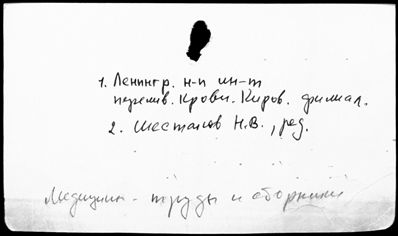 1. Ленингр. н-и ин-т
перелив. Крови. Киров. филиал.
2. Шестаков Н.В., ред.
Медицин - труды и сборники